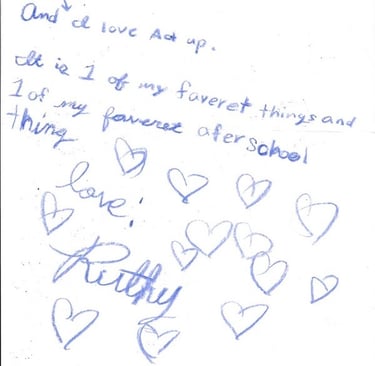 And I love Act up.
It is 1 of my faveret things and
1 of my faveret afer school
thing
love!
Ruthy